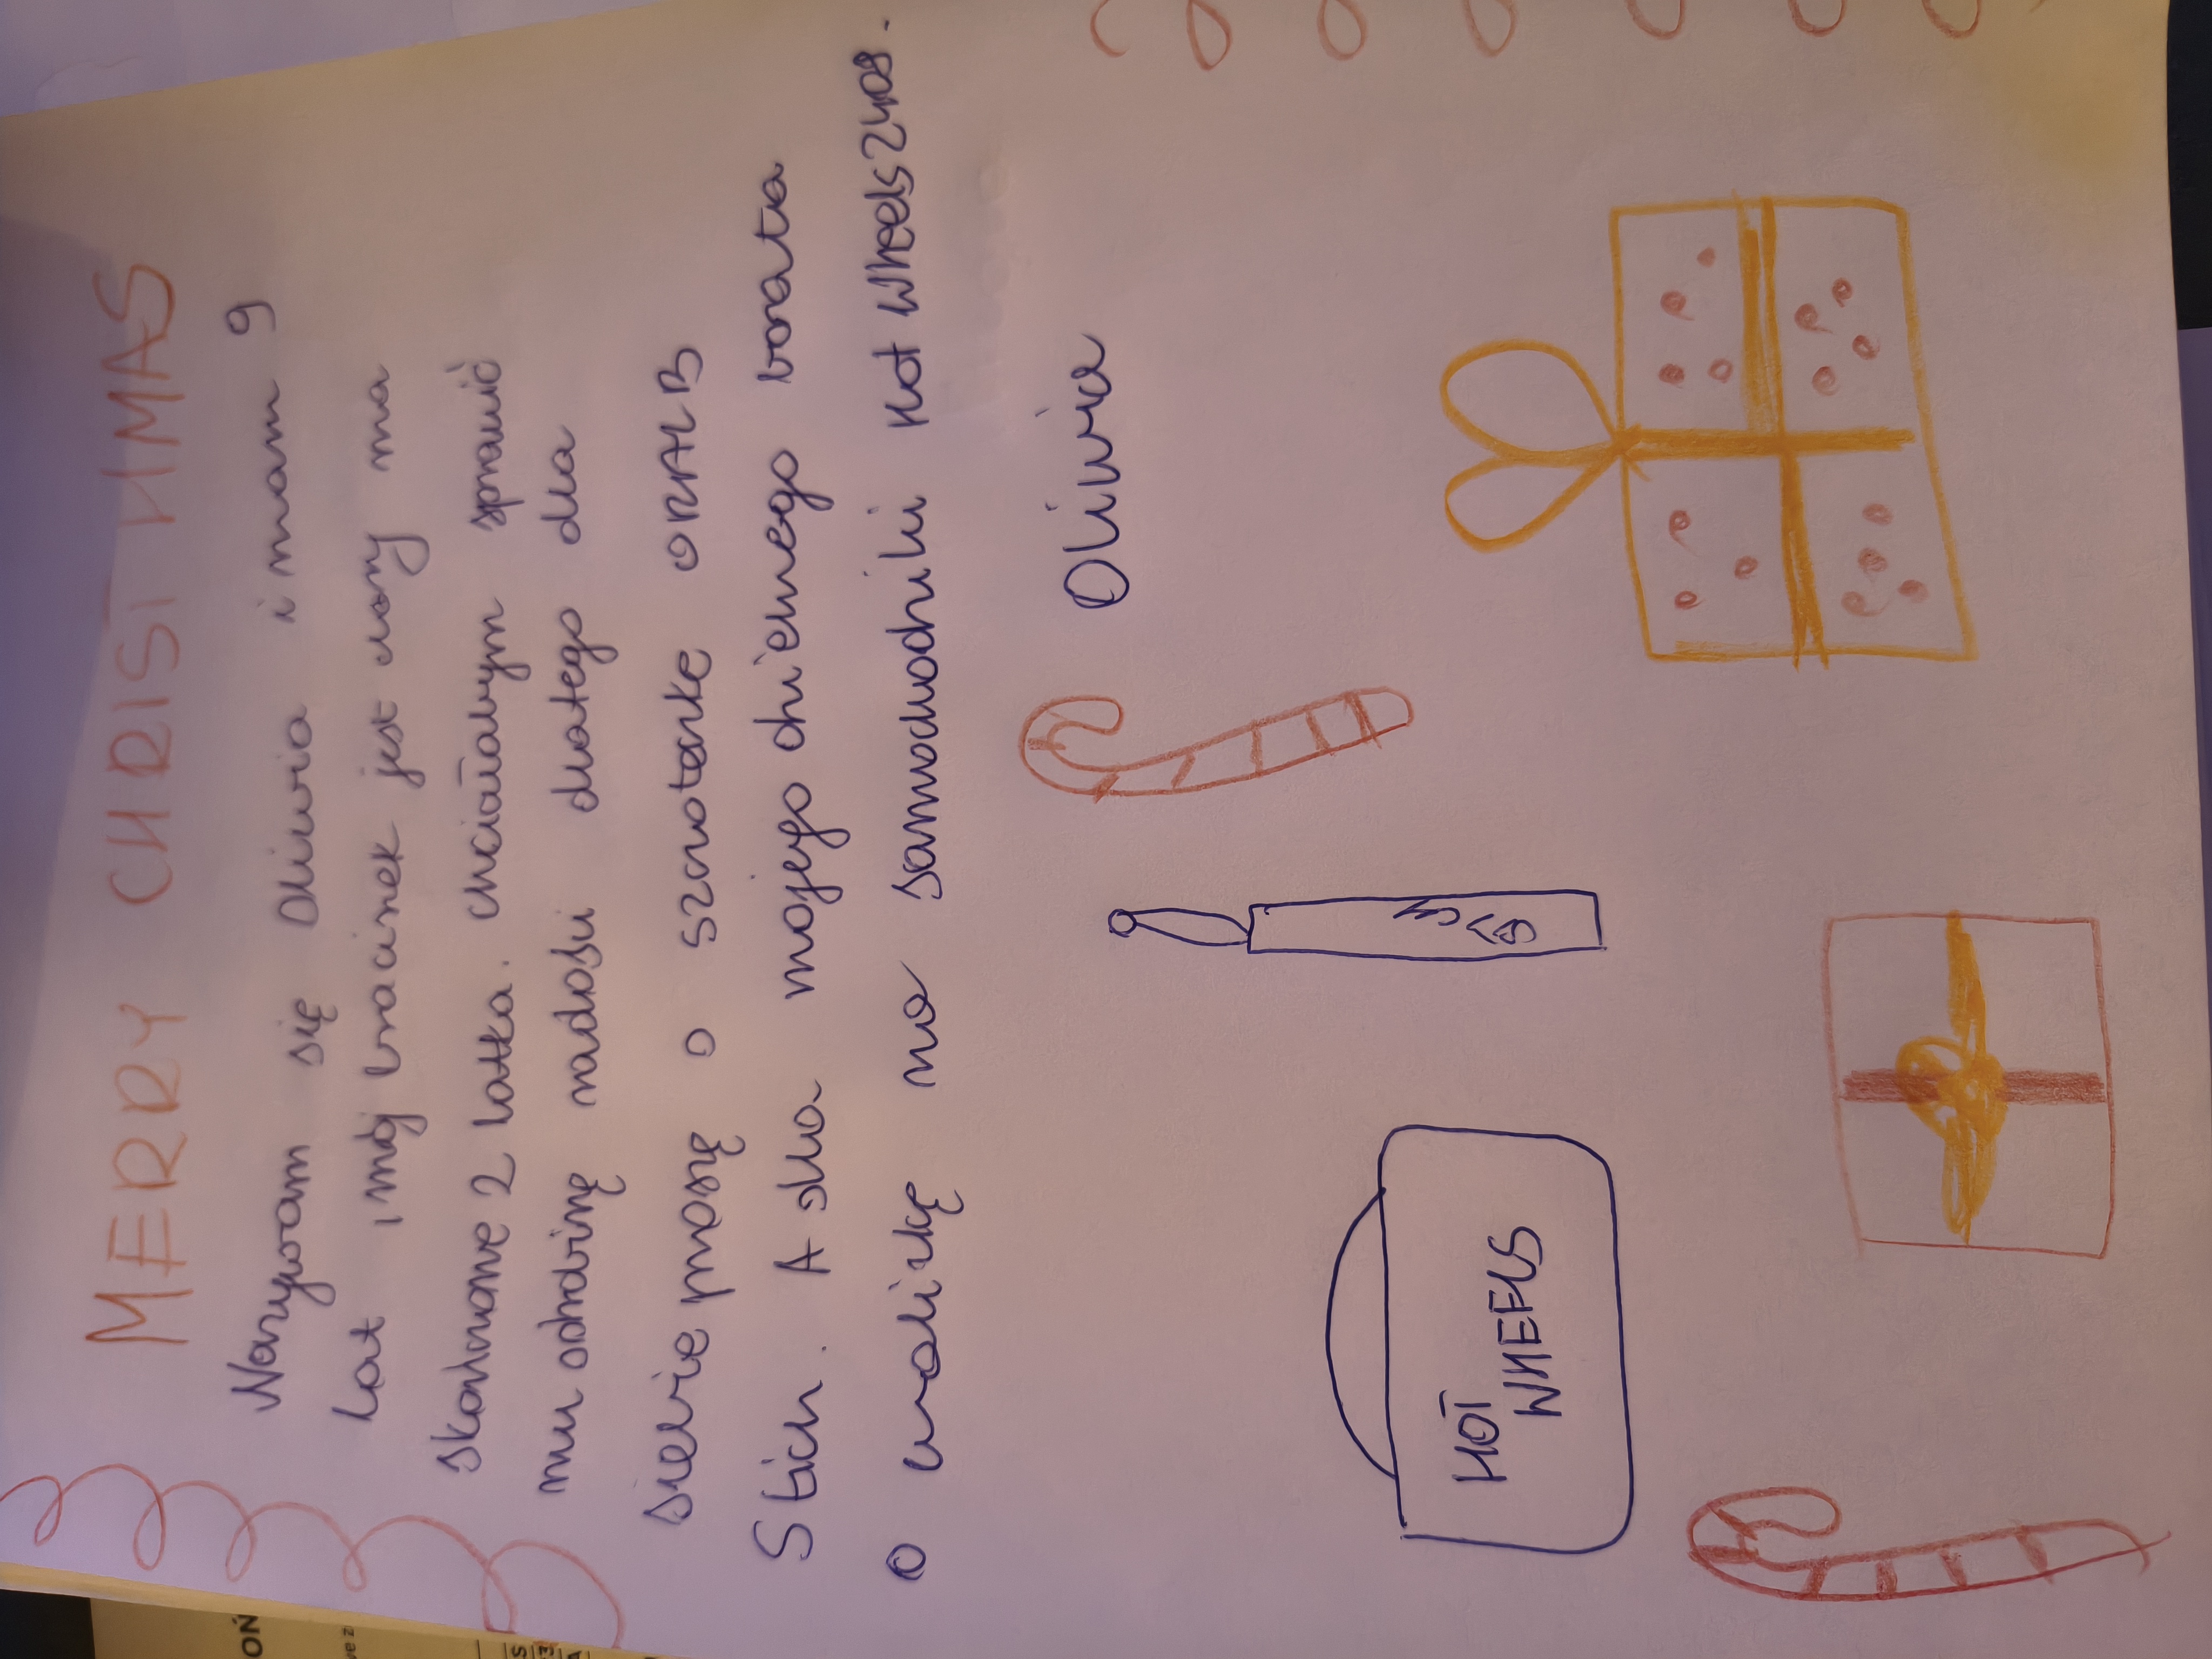 MERRY CHRISTHMAS
Nazywam się Oliwia i mam 9
lat i mój bracinek jest chory ma
skończone 2 latka. chciałabym sprawić
mu odrobinę radości dlatego dla
siebie proszę o szczoteczke ORALB
Stich. A dla mojego chrzesnego brata
o walizkę na samochodziki hot wheels 2400.
Oliwia
HOT
WHEELS